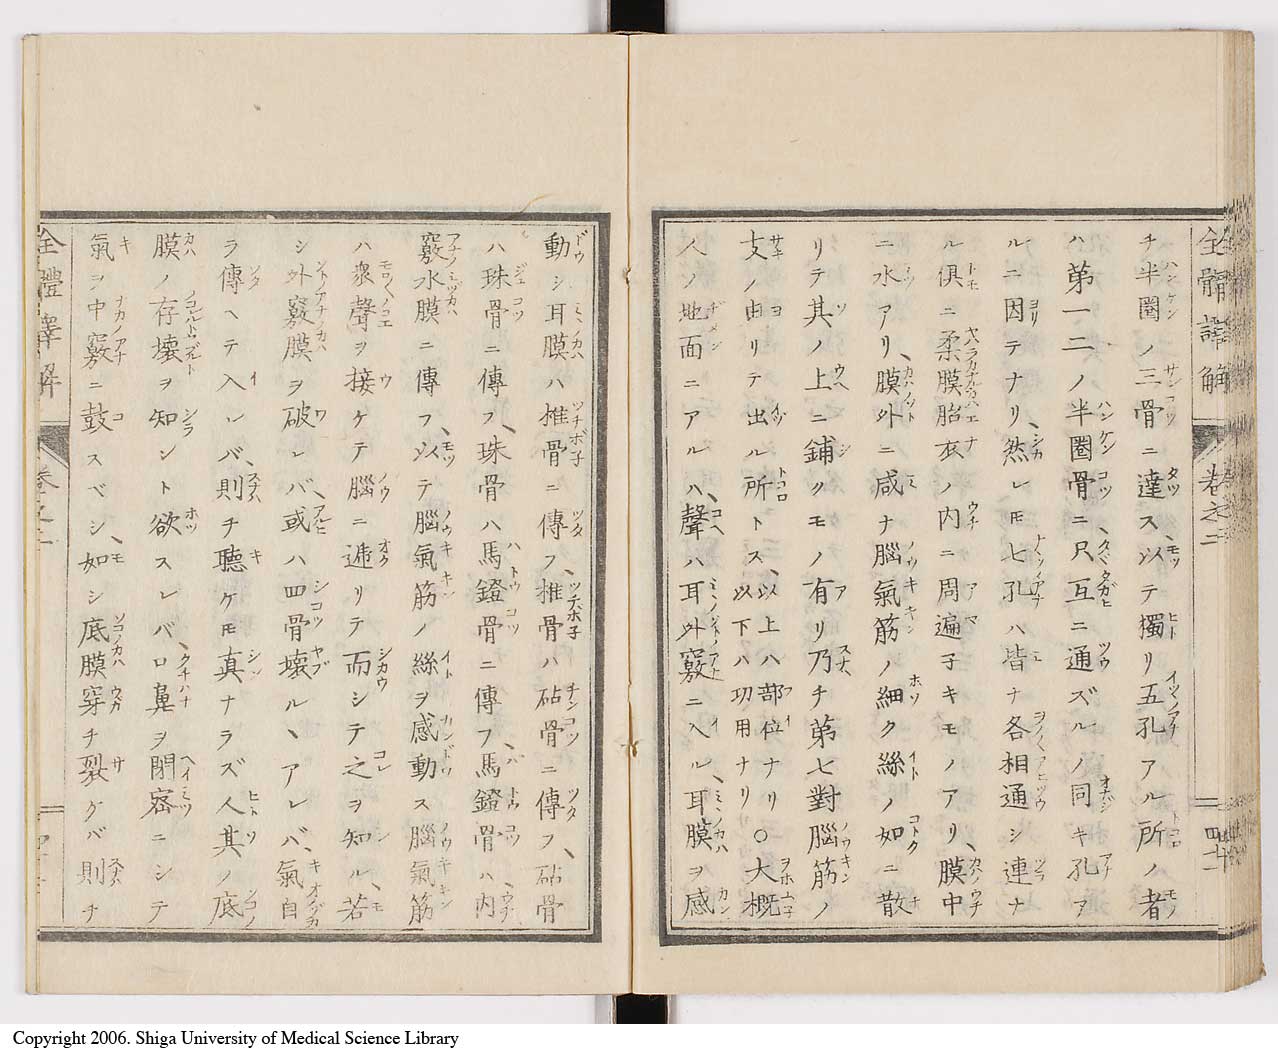 チ半圏ノ三骨ニ達ス、以テ獨リ五孔アル所ノ者
ハ第一二ノ半圏骨ニ尺互ニ通ズルノ同キ孔ア
ルニ因テナリ、然レ𪜈七孔ハ皆ナ各相通シ連ナ
ル俱ニ柔膜胎衣ノ内ニ周遍子キモノアリ、膜中
ニ水アリ、膜外ニ咸ナ腦氣筋ノ細ク絲ノ如ニ散
リテ其ノ上ニ鋪クモノ有リ乃チ第七對腦筋ノ
支ノ由リテ出ル所トス、以上ハ部位ナリ〇大概
以下ハ功用ナリ
人ノ地面ニアルハ、聲ハ耳外竅ニ入ル、耳膜ヲ感
全體譯解
卷之二
四十二
動シ耳膜ハ椎骨ニ傳フ、椎骨ハ砧骨ニ傳フ、砧骨
ハ珠骨ニ傳フ、珠骨ハ馬鐙骨ニ傳フ、馬鐙骨ハ内
竅水膜ニ傳フ、以テ腦氣筋ノ絲ヲ感動ス腦氣筋
ハ衆聲ヲ接ケテ腦ニ遞リテ而シテ之ヲ知ル、若
シ外竅膜ヲ破レバ、或ハ四骨壞ル、アレバ、氣自
ラ傳ヘテ入レバ、則チ聽ケ𪜈真ナラズ人其ノ底
膜ノ存壞ヲ知ント欲スレバ、口鼻ヲ閉密ニシテ
氣ヲ中竅ニ鼓スベシ、如シ底膜穿チ裂ゲバ則チ
全體譯解
卷之二